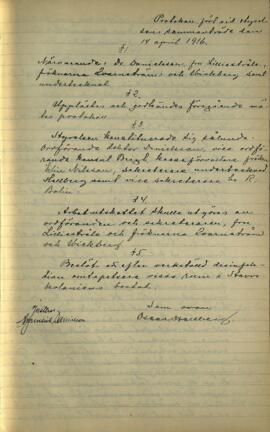 Protokoll förl vid styrel-
sens sammanträde den
14 april 1916.
§1.
Närvarande: Dr Danielsson, fru Lilliestråle,
fröknarna Quarnström och Wickberg samt
undertecknad.
§2.
Upplästes och godkändes föregående mö-
tes protokoll.
§3.
Styrelsen konstituerade sig sålunda:
Ordförande doktor Danielsson, vice ordfö-
rande konsul Bergh, kassaförvaltare frök.
Nilsson, sekreterare undertecknad
Hallberg samt vice sekreterare hr R.
Bolin.
§4.
Arbetsutskottet skulle utgöras av
ordföranden och sekreteraren, fru
Lilliestråle och fröknarna Quarnström
och Wickberg.
§5.
Beslöt att efter verkställd desinfek-
tion omtapetsera vissa rum i
koloniens bostad.
Som ovan
Oscar Hallberg
Justeras